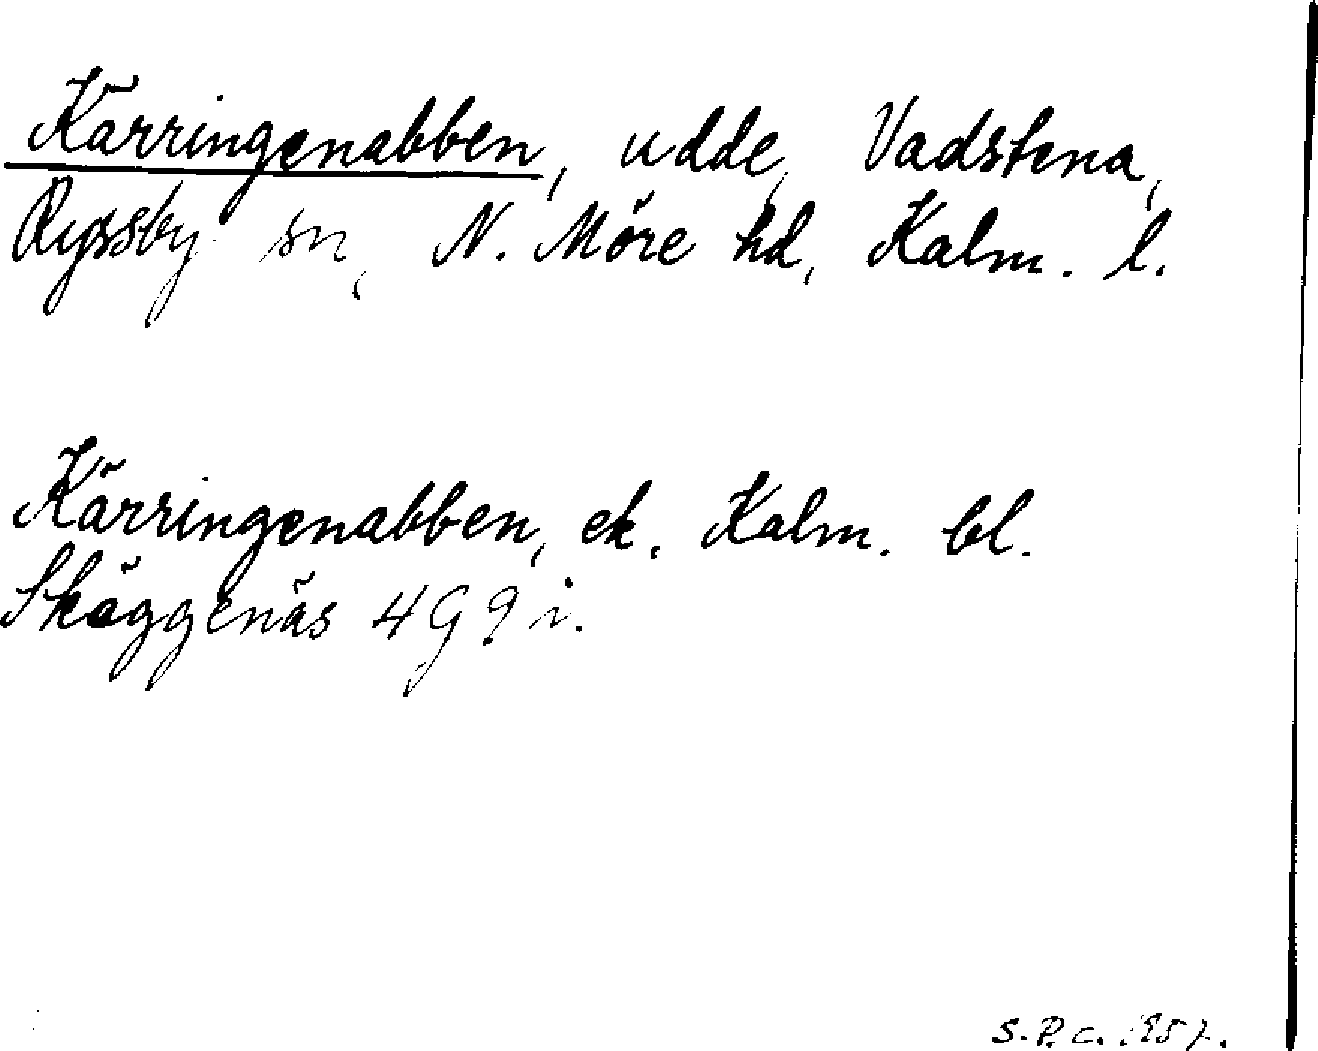 Kärringenabben, udde, Vadstena,
Ryssby sn, N. Möre hd, Kalm. l.
Kärringenabben, ek. Kalm. bl.
Skäggenäs 4G9i.
S.P.C. 1957.